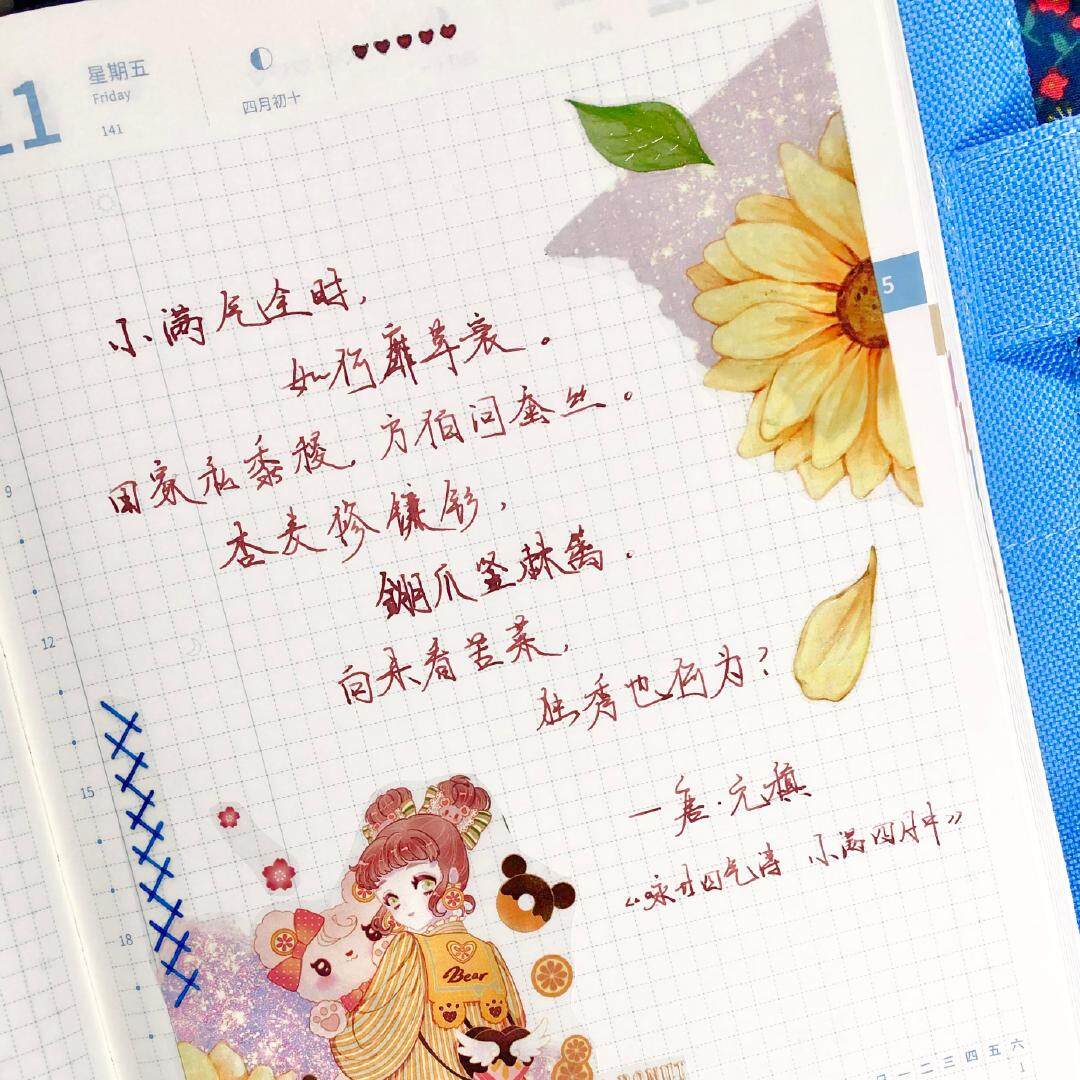 21
星期五
Friday
141
四月初十
5
小满气全时，
如何靡草衰。
田家私黍稷，方伯问蚕丝。
杏麦修镰钐，
锄爪竖棘篱.
向来看苦菜，
独秀也何为？
—唐·元稹
《咏廿四气诗 小满四月中》
9
12
15
18
Bear
DONUT
一 二 三 四 五 六
1